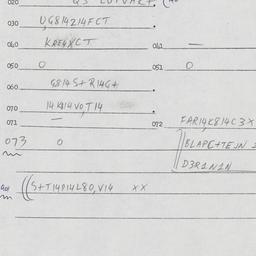 020
030 U,G814214FCT
040 KRE4XCT 041 —
050 0 051 0
060 G814S+R14G+
070 14K414V0,T14
071 — 072 FAR14,K814C3X
073 0 BLAPC+7EJN
D3R1N1N
S+T14P14L80,V14 XX